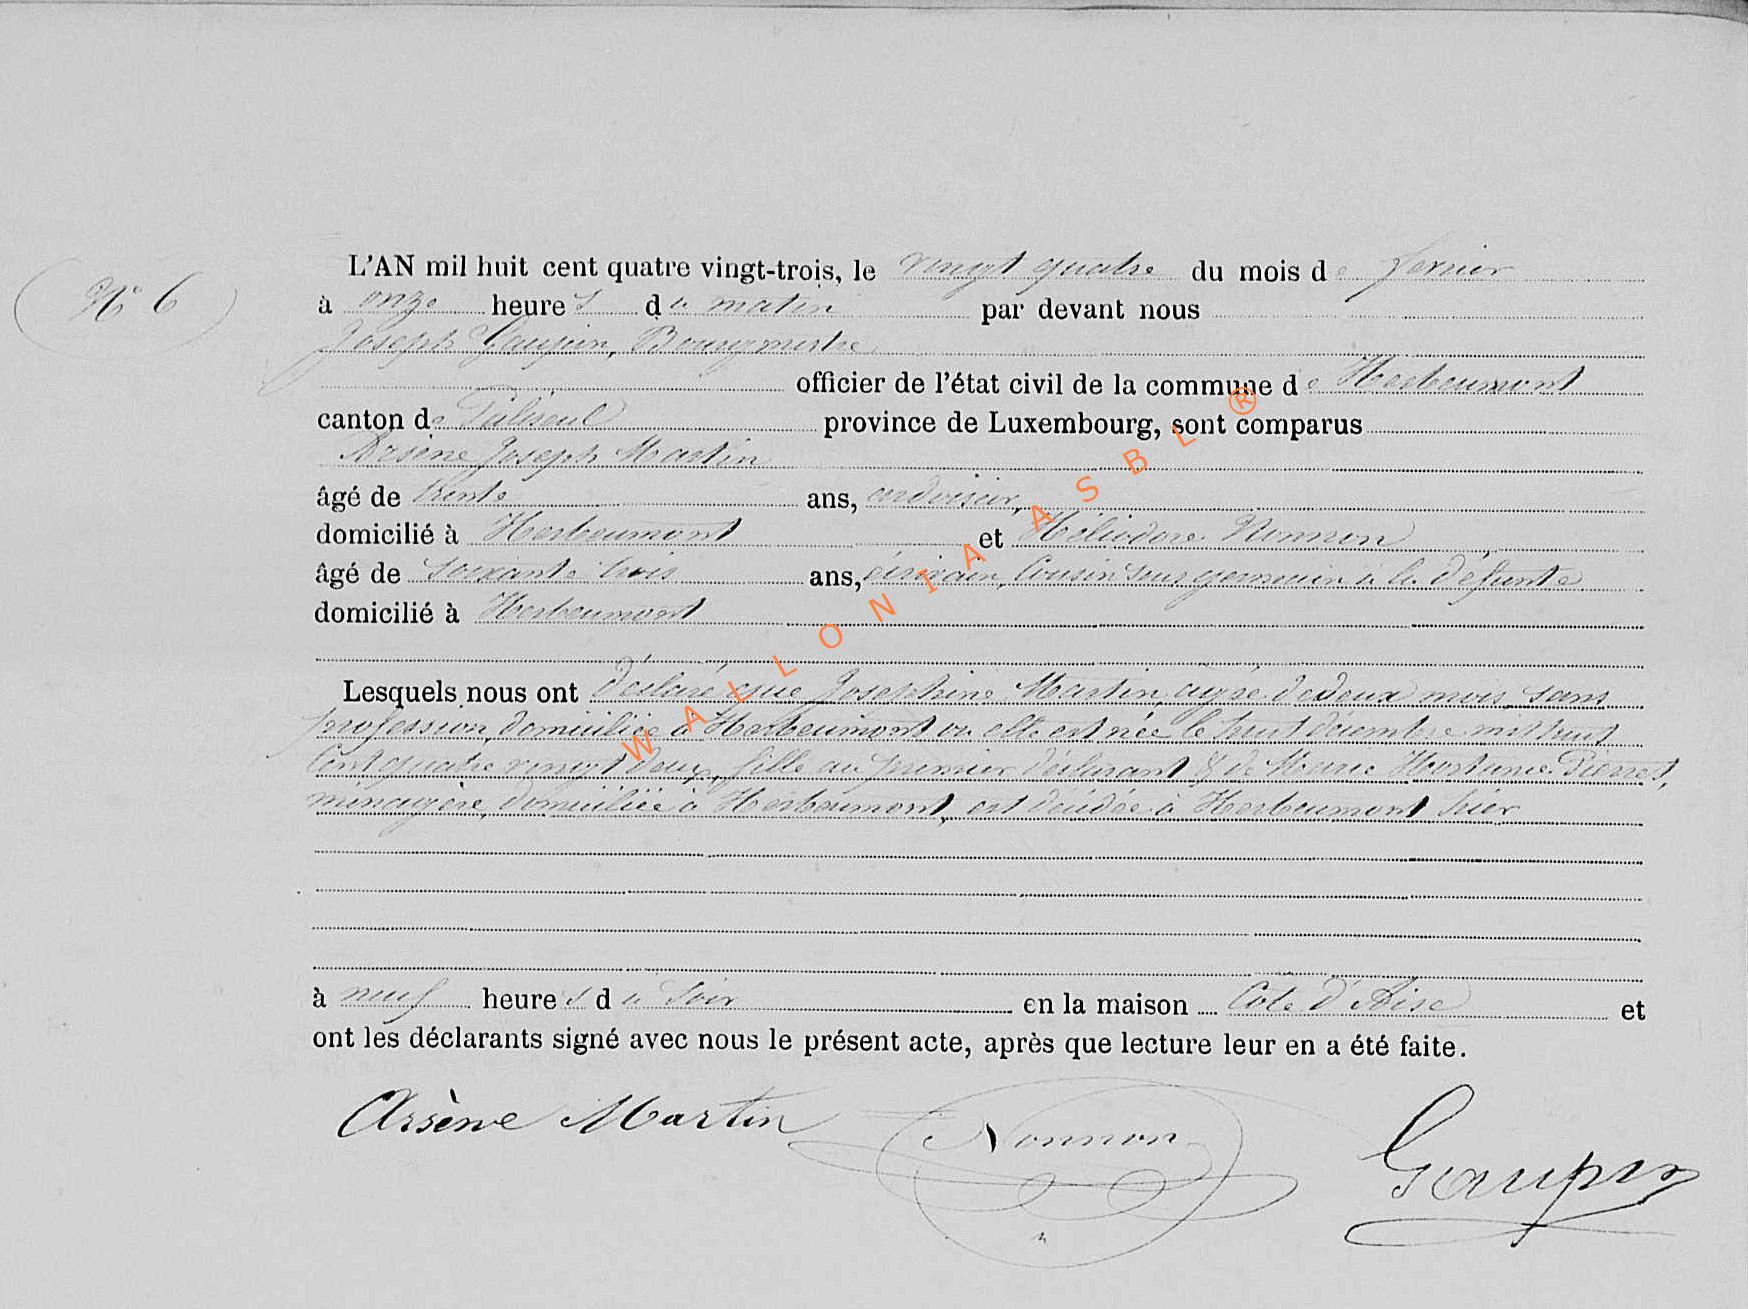 N° 6
L'AN mil huit cent quatre vingt-trois, le vingt quatre du mois de fevrier
à onze heures du matin par devant nous
Joseph Gaupin, Bourgmestre
officier de l'état civil de la commune de Herbeumont
canton de Paliseul province de Luxembourg, sont comparus
Arsène Joseph Martin
âgé de trente ans, ardoisier,
domicilié à Herbeumont et Héliodore Nonnon
âgé de soixante trois ans, écrivain, Cousin sous germain à la défunte
domicilié à Herbeumont
Lesquels nous ont déclaré que Josephine Martin, agée de deux mois, sans
profession, domiciliée à Herbeumont ou elle est née le huit décembre mil huit
Cent quatre vingt deux, fille au premier déclarant & de Marie Hortense Pierret,
ménagère, domiciliée à Herbeumont, est décédée à Herbeumont hier
à neuf heures du Soir en la maison Cote d'Aise et
ont les déclarants signé avec nous le présent acte, après que lecture leur en a été faite.
Arsène Martin Nonnon Gaupin
WALLONIA ASBL ®